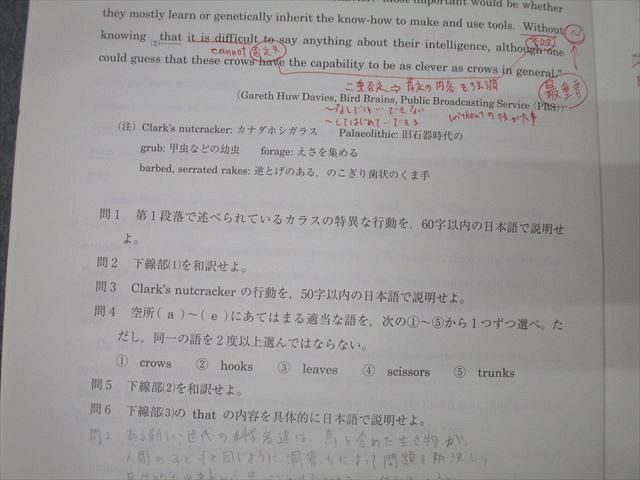 they mostly learn or genetically inherit the know-how to make and use tools. Without
knowing (3)that it is difficult to say anything about their intelligence, although one
cannot 否定文
could guess that these crows have the capability to be as clever as crows in general."
二重否定 ⇒ 肯定の内容を強調
最重要
(Gareth Huw Davies, Bird Brains, Public Broadcasting Service (PBS))
〜なしでは…できない
〜してはじめて…できる
withoutの後が大事
(注) Clark's nutcracker: カナダホシガラス Palaeolithic: 旧石器時代の
grub: 甲虫などの幼虫 forage: えさを集める
barbed, serrated rakes: 逆とげのある,のこぎり歯状のくま手
問1 第1段落で述べられているカラスの特異な行動を,60字以内の日本語で説明せ
よ。
問2 下線部(1)を和訳せよ。
問3 Clark's nutcracker の行動を,50字以内の日本語で説明せよ。
問4 空所( a )〜( e )にあてはまる適当な語を,次の①〜⑤から1つずつ選べ。た
だし,同一の語を2度以上選んではならない。
① crows ② hooks ③ leaves ④ scissors ⑤ trunks
問5 下線部(2)を和訳せよ。
問6 下線部(3)の that の内容を具体的に日本語で説明せよ。
問2 ある新しい世代の科学者達は、鳥を含めた生き物が、
人間の子どもと同じように洞察力によって問題を解決し、